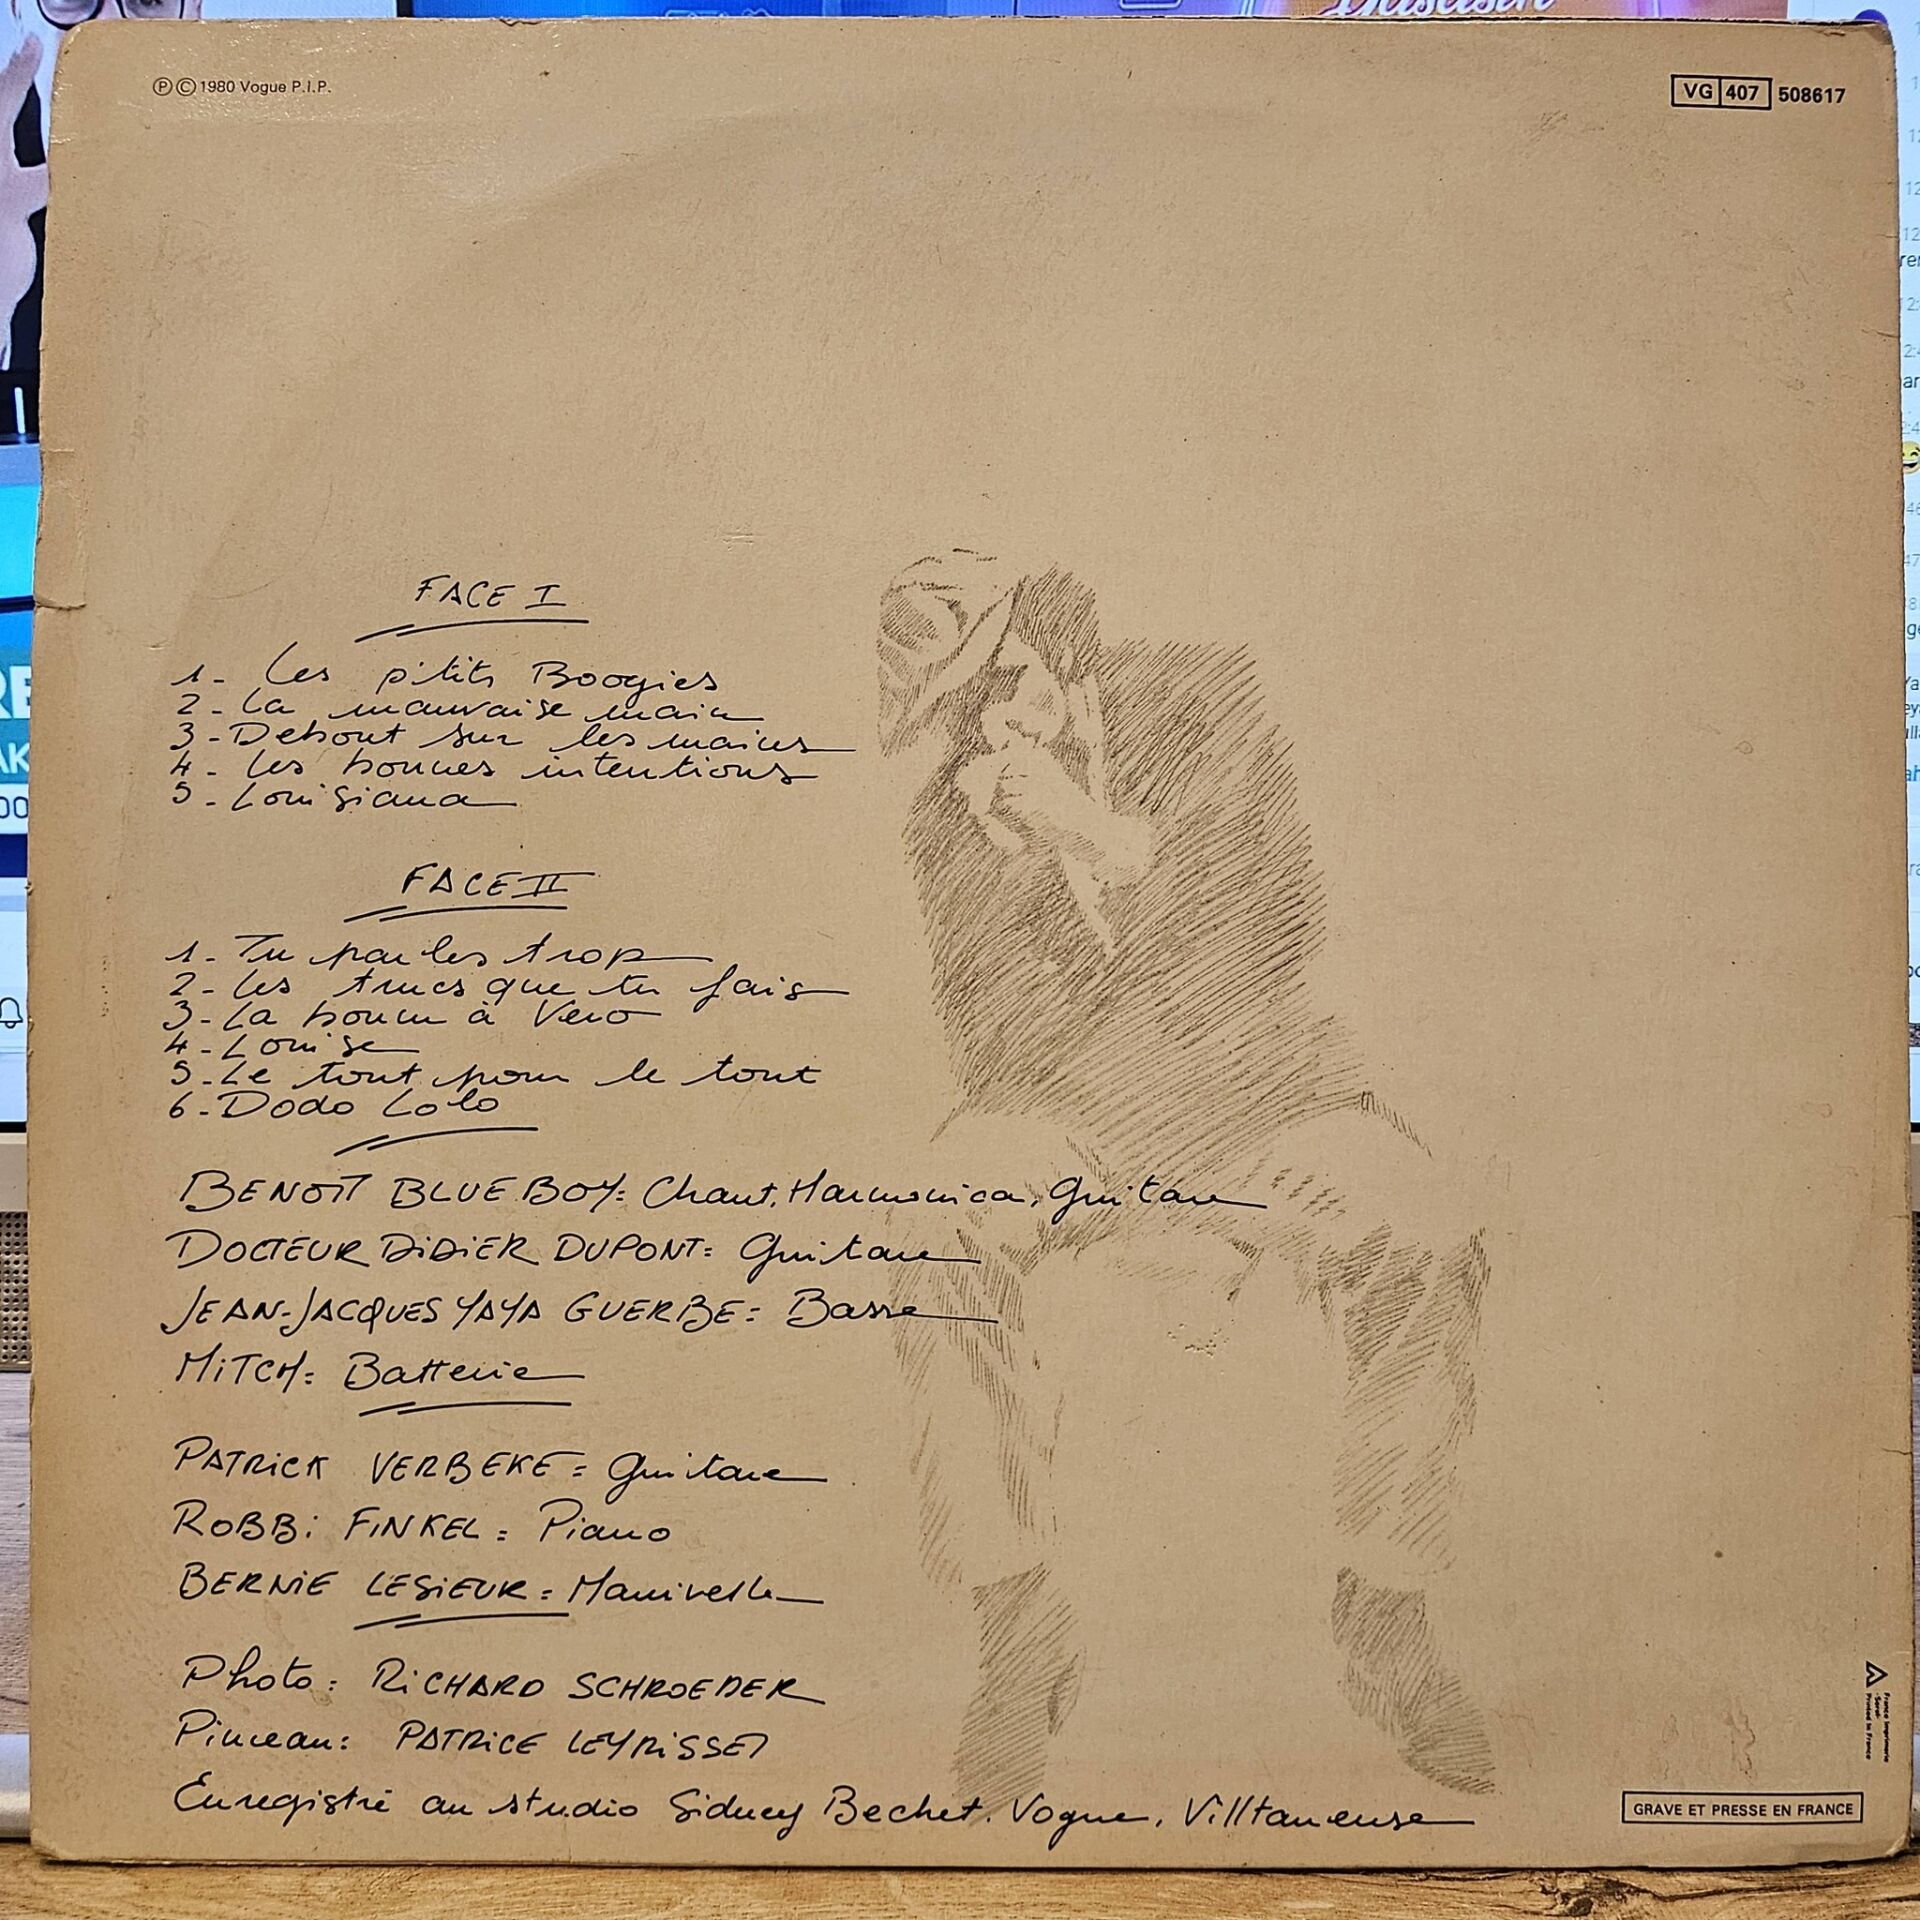 Ⓟ Ⓒ 1980 Vogue P.I.P.
VG 407 508617
FACE I
1- Les p'tits Boogies
2- La mauvaise main
3- Debout sur les mains
4- Les bonnes intentions
5- Louisiana
FACE II
1- Tu parles trop
2- Les trucs que tu fais
3- La bonne à Vero
4- Louise
5- Le tout pour le tout
6- Dodo Lolo
BENOÎT BLUE BOY: Chant, Harmonica, Guitare
DOCTEUR DiDiER DUPONT: Guitare
JEAN-JACQUES YAYA GUERBE: Basse
MiTCH: Batterie
PATRiCK VERBEKE: Guitare
ROBBi FiNKEL: Piano
BERNiE LESiEUR: Manivelle
Photo: RiCHARD SCHROEDER
Pinceau: PATRiCE LEYRiSSET
Enregistré au studio Sidney Bechet. Vogue. Villtaneuse
GRAVE ET PRESSE EN FRANCE
France Imprimerie
Printed in France